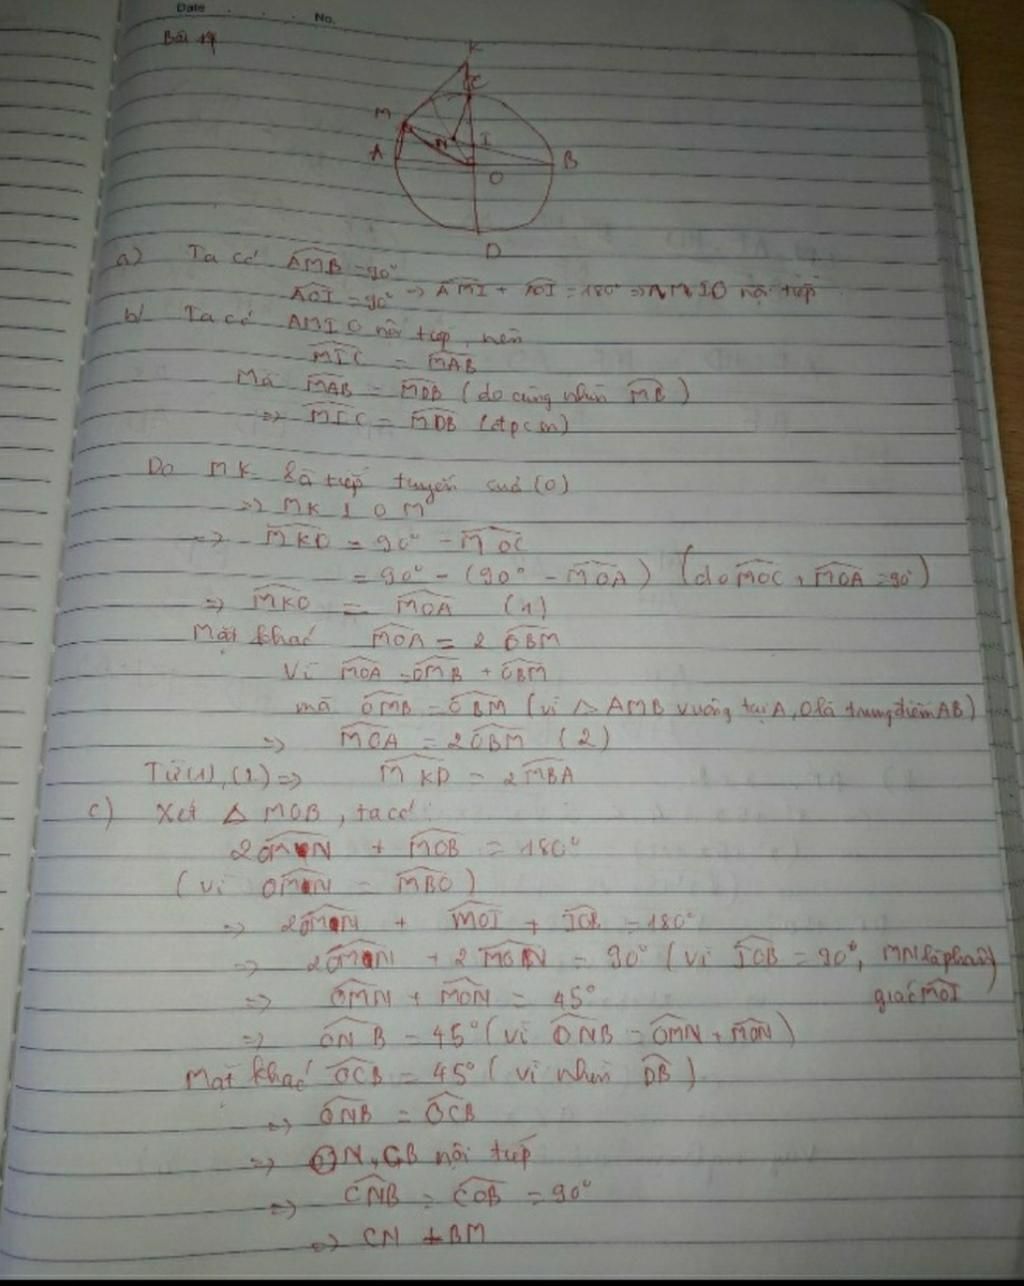 Date
No.
Bài 19
K
C
M
N
I
A
B
O
D
a) Ta có AMB = 90°
AOI = 90° => AMI + AOI = 180° => AMIO nội tiếp
b/ Ta có AMIO nội tiếp, nên
MIC = MAB
Mà MAB = MDB (do cùng nhìn MB)
=> MIC = MDB (đtpcm)
Do MK là tiếp tuyến của (O)
=> MK ⊥ OM
=> MKD = 90° - MOC
= 90° - (90° - MOA) (do MOC + MOA = 90°)
=> MKO = MOA (1)
Mặt khác MOA = 2 OBM
Vì MOA = OMB + OBM
mà OMB = OBM (vì △ AMB vuông tại A, O là trung điểm AB)
=> MOA = 2OBM (2)
Từ (1), (2) => MKD = 2MBA
c) Xét △ MOB, ta có:
2OMN + MOB = 180°
(vì OMN = MBO)
=> 2OMN + MOI + IOB = 180°
=> 2OMN + 2MON = 90° (vì IOB = 90°, MN là phân
giác MOI)
=> OMN + MON = 45°
=> ONB = 45° (vì ONB = OMN + MON)
Mặt khác OCB = 45° (vì nhìn DB)
=> ONB = OCB
=> ON, CB nội tiếp
=> CNB = COB = 90°
=> CN ⊥ BM